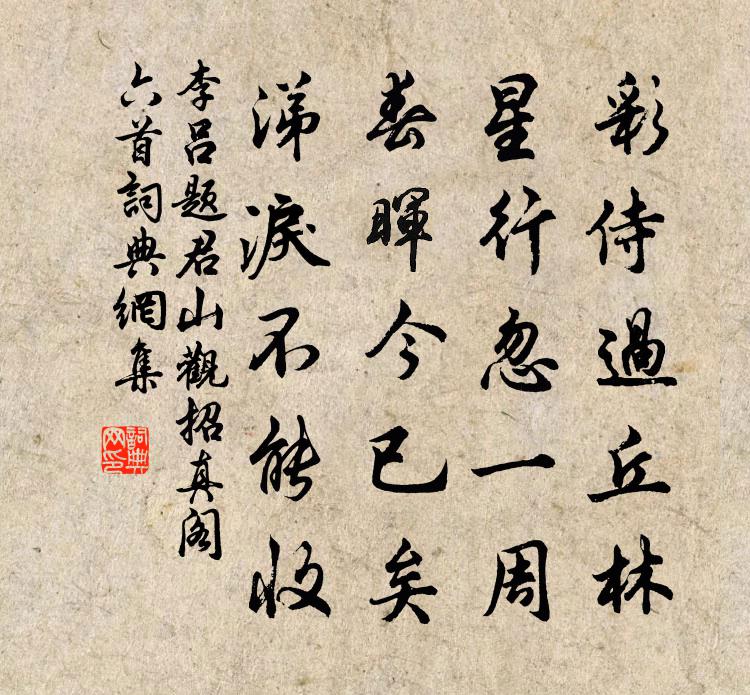 彩侍過丘林
星行忽一周
春暉今已矣
涕淚不能收
李呂題君山觀招真閣
六首詞典網集
詞典網印